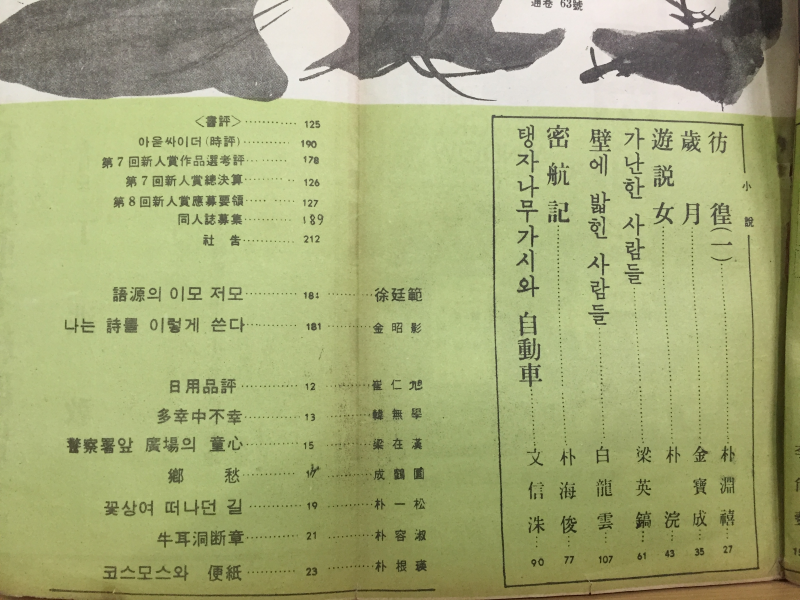 通巻 63號
小說
彷徨(一) 朴淵禧 27
歲月 金寶成 35
遊説女 朴浣 43
가난한 사람들 梁英鎬 61
壁에 밟힌 사람들 白龍雲 107
密航記 朴海俊 77
탱자나무가시와 自動車 文信洙 90
〈書評〉 125
아욷싸이더(時評) 190
第7回新人賞作品選考評 178
第7回新人賞總決算 126
第8回新人賞應募要領 127
同人誌募集 189
社告 212
語源의 이모 저모 徐廷範
나는 詩를 이렇게 쓴다 181 金昭影
日用品評 12 崔仁旭
多幸中不幸 13 韓無學
警察署앞 廣場의 童心 15 梁在漢
鄕愁 成鶴圓
꽃상여 떠나던 길 19 朴一松
牛耳洞断章 21 朴容淑
코스모스와 便紙 23 朴根瑛